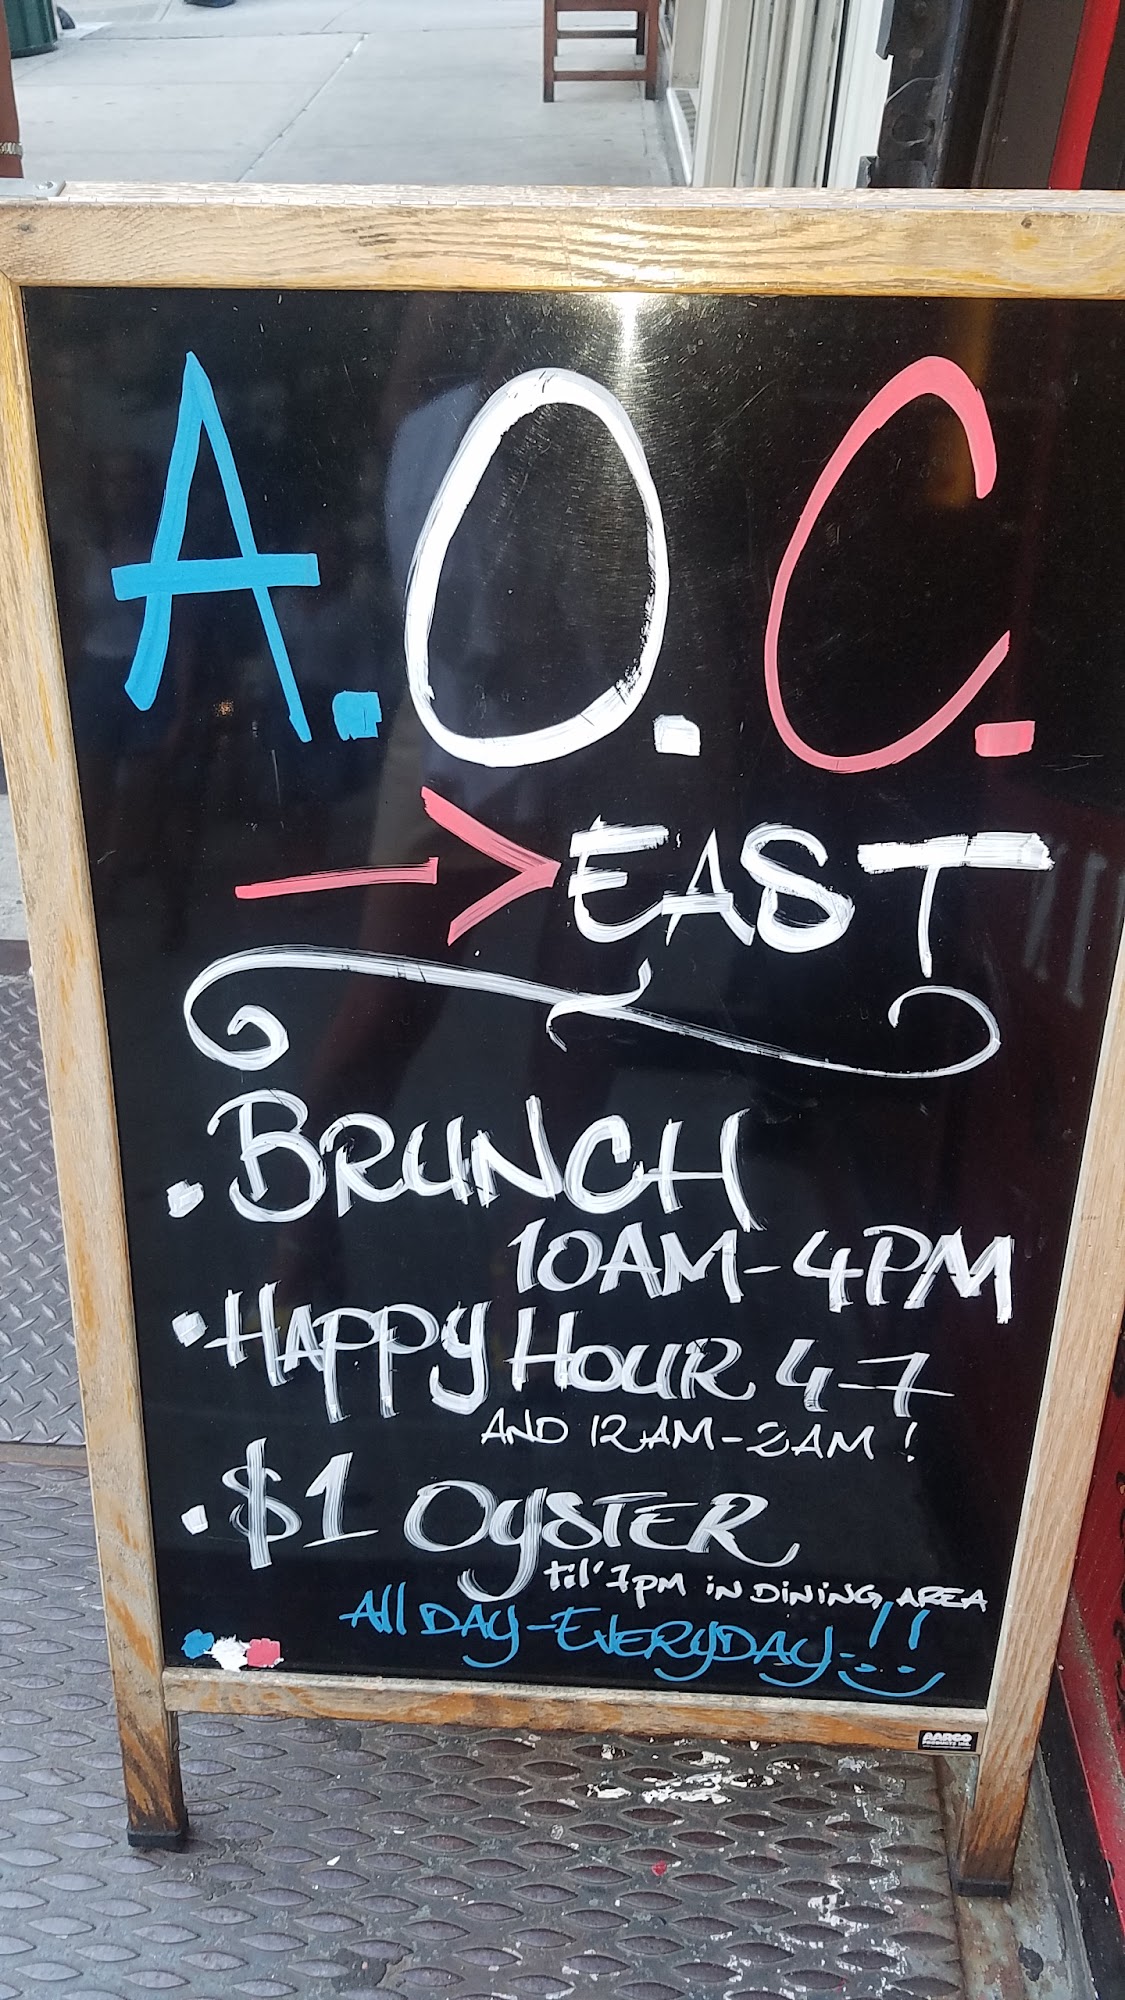 A.O.C.
EAST
BRUNCH
10AM-4PM
HAPPY HOUR 4-7
AND 12AM-2AM!
$1 OYSTER
til' 7pm in DINING AREA
All DAY-EVERYDAY!!
AARCO
PRODUCTS INC.